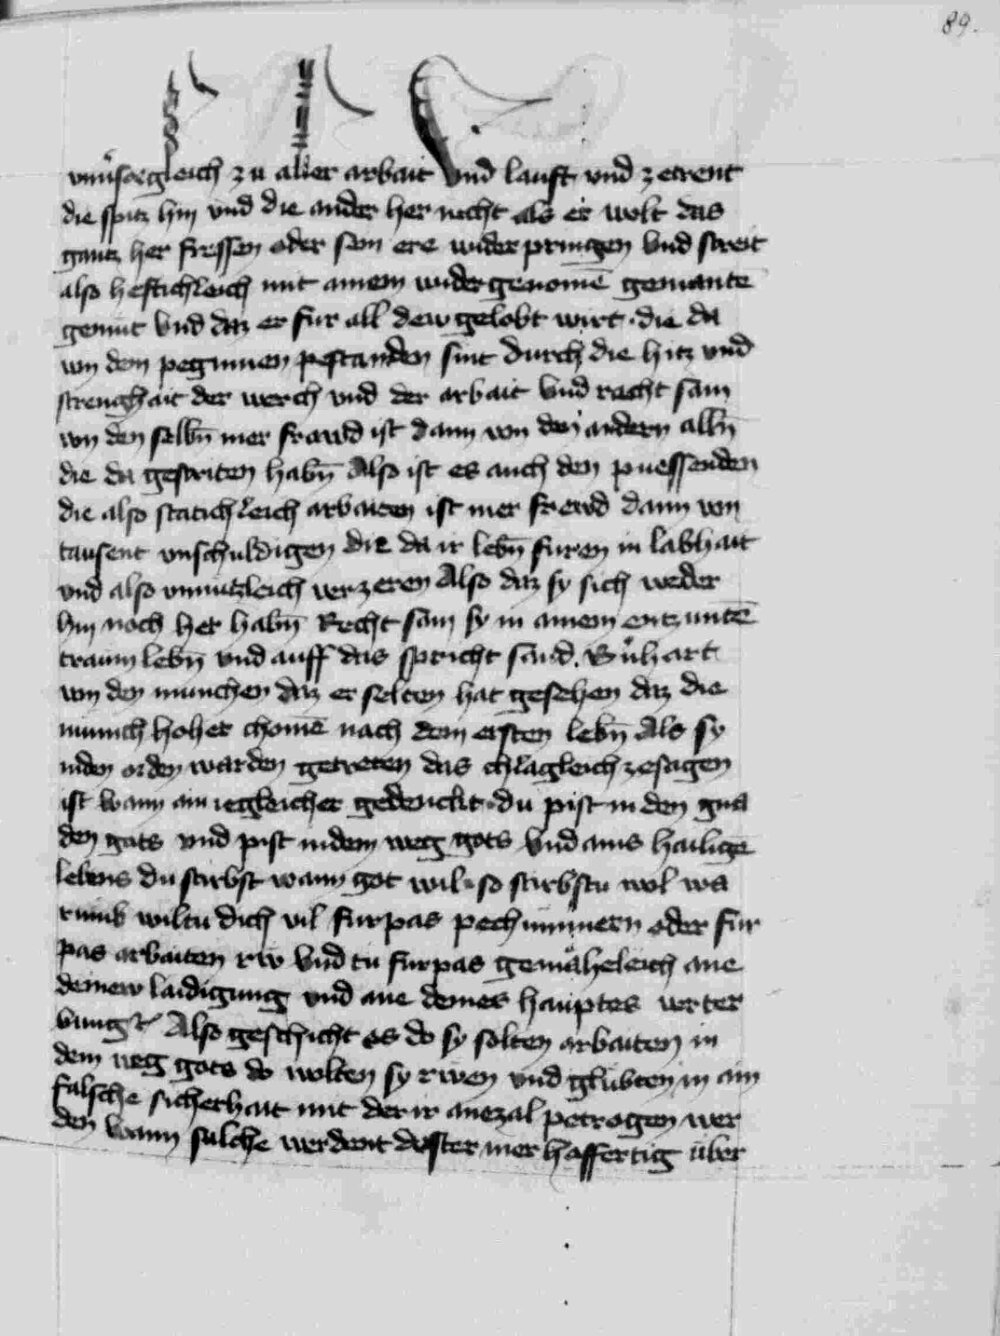 89.
vnuͦsoegleich zu aller arbait vnd lauft vnd zetrent
die spitz hin vnd die ander her nicht als er wolt das
gantz her fressen oder sein ere wider pringen vnd streit
also heftichleich mit ainem wider genomē gemante
gemüt vnd daz er fur all dew gelobt wirt. die da
von dem peginnen pestanden sint durch die hitz vnd
strenghait der werch vnd der arbait vnd racht sam
von den selbn̄ mer frawd ist dann von den andern alln̄
die da gestriten habn̄ Also ist es auch den puessenden
die also statichleich arbaiten ist mer frewd dann von
tausent vnschuldigen die da ir lebn̄ furen in labhait
vnd also vnnützleich verzeren Also daz sy sich weder
hin noch her habn̄ Recht sam sy in ainem entzuntē
traum lebn̄ vnd auff das spricht sand. Bͦnhart
von den munchen daz er selten hat gesehen daz die
münich hoher chomē nach dem ersten lebn̄ Als sy
inden orden warden getreten das chlagleich zesagen
ist wann ain iegleicher gedenckt. du pist in den gna
den gots vnd pist indem weg gots vnd ains hailigē
lebens du stirbst wann got wil. so stirbstu wol wa
rumb wiltu dich vil furpas pechümmern oder fur
pas arbaiten rw vnd tu furpas gemaͤheleich ane
deinew laidigung vnd ane deines hauptes verter
bung Also geschicht es do sy solten arbaiten in
dem weg gots do wolten sy rwen vnd glubten in ain
falsche sicherhait mit der ir anezal petrogen wer
den wann sulche werdent dester mer hoffertig über